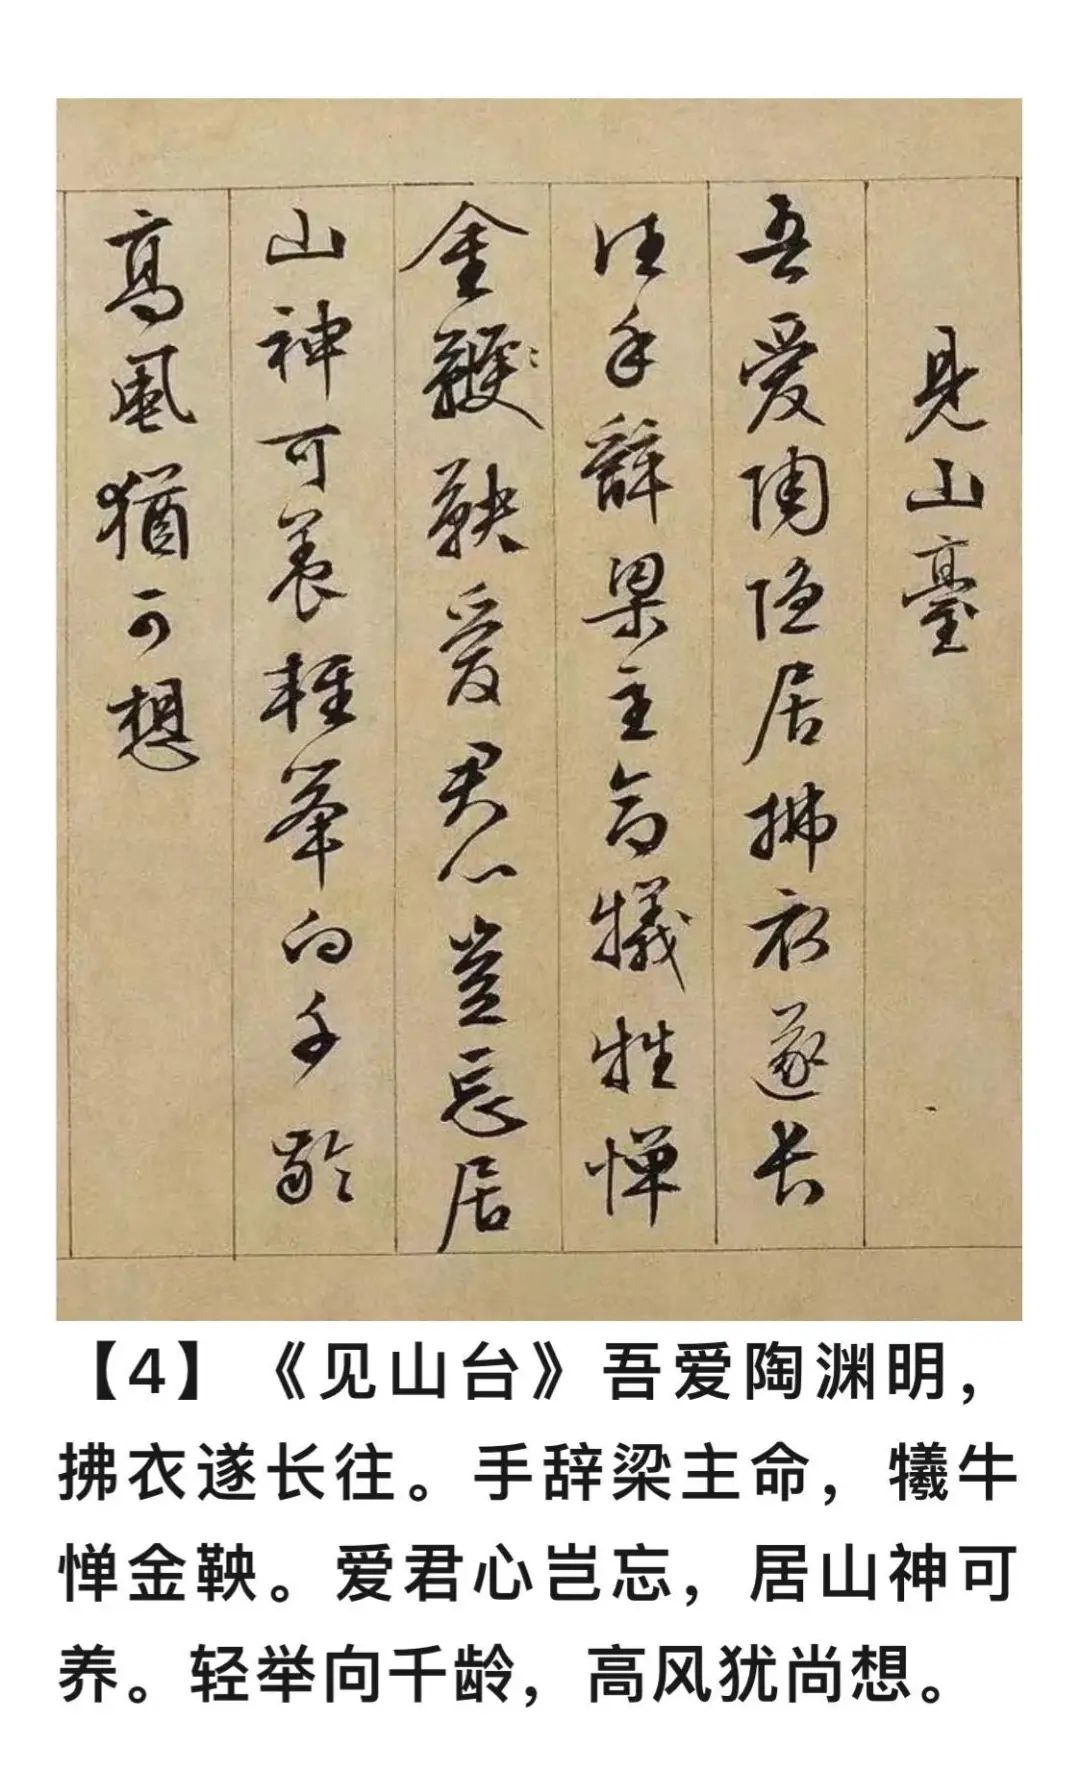 見山臺
吾愛陶隐居拂衣遂長
往手辭梁主命犧牲憚
金鞅愛君心豈忘居
山神可養輕舉向千齡
高風猶可想
【4】《见山台》吾爱陶渊明，
拂衣遂长往。手辞梁主命，犧牛
惮金鞅。爱君心岂忘，居山神可
养。轻举向千龄，高风犹尚想。